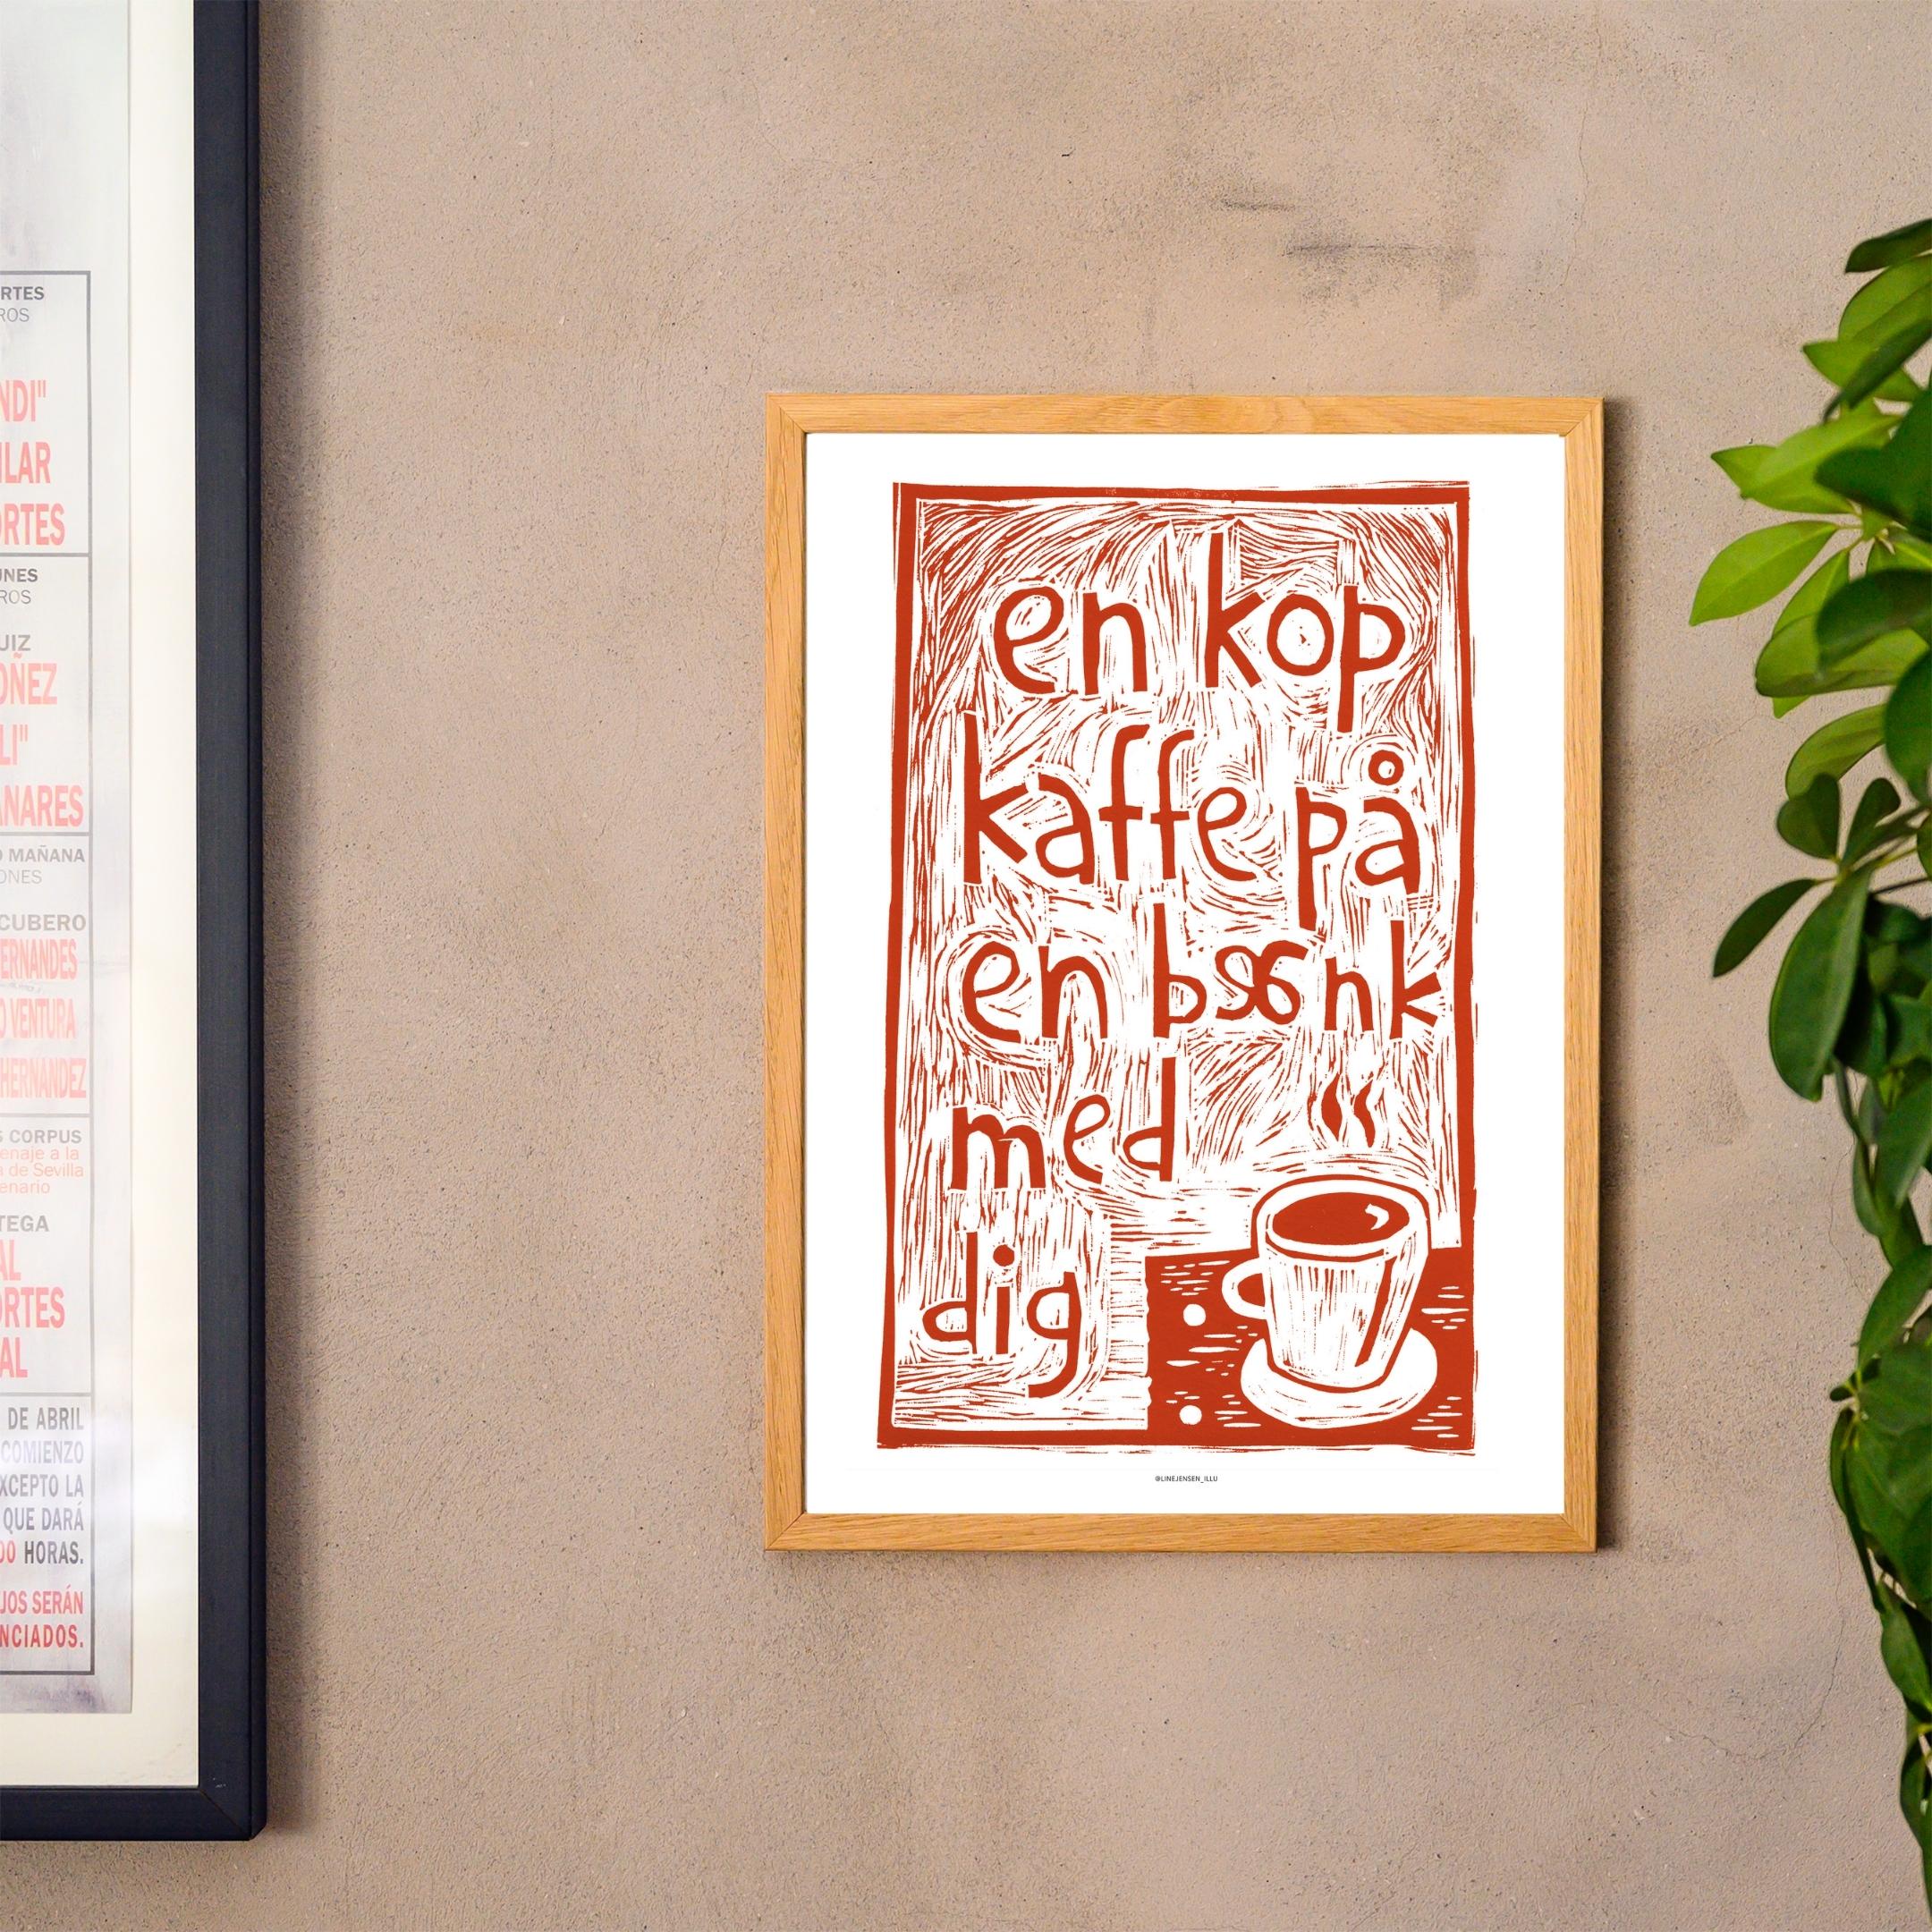 RTES
ROS
NDI"
ILAR
ORTES
UNES
ROS
UIZ
OÑEZ
LI"
ANARES
O MAÑANA
ONES
CUBERO
ERNANDES
O VENTURA
HERNÁNDEZ
S CORPUS
enaje a la
a de Sevilla
enario
TEGA
AL
ORTES
AL
DE ABRIL
COMIENZO
XCEPTO LA
QUE DARÁ
00 HORAS.
JOS SERÁN
NCIADOS.
en kop
kaffe på
en bænk
med
dig
@LINEJENSEN_ILLU